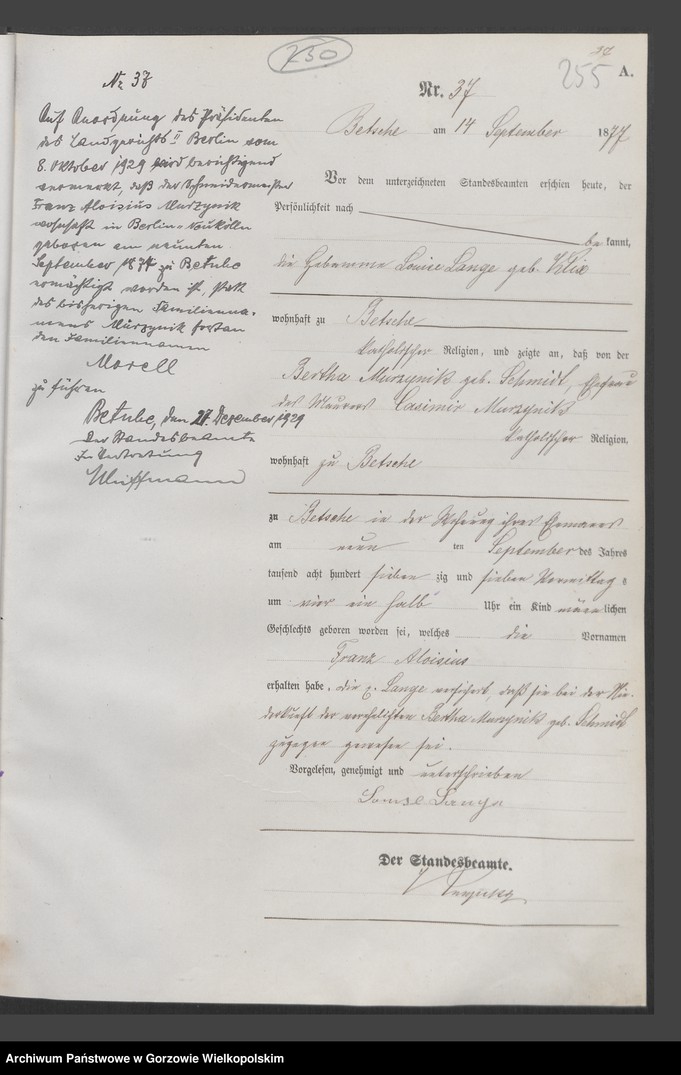 250
37
255 A.
Nr. 37
Betsche am 14 September 1877
Vor dem unterzeichneten Standesbeamten erschien heute, der
Persönlichkeit nach
bekannt,
die Hebamme Louise Lange geb.
wohnhaft zu Betsche
katholischer Religion, und zeigte an, daß von der
Bertha Murzynik geb. Schmidt, Ehefrau
des Maurers Casimir Murzynik
katholischer Religion,
wohnhaft zu Betsche
zu Betsche in der Wohnung ihres Ehemannes
am neun ten September des Jahres
tausend acht hundert sieben zig und sieben Vormittags
um vier ein halb Uhr ein Kind männlichen
Geschlechts geboren worden sei, welches die Vornamen
Franz Aloisius
erhalten habe. Die p. Lange versichert, daß sie bei der Nie-
derkunft der verehelichten Bertha Murzynik geb. Schmidt
zugegen gewesen sei.
Vorgelesen, genehmigt und unterschrieben
Louise Lange
Der Standesbeamte.
Nr 37
Auf Anordnung des Präsidenten
des Landgerichts II Berlin vom
8. Oktober 1929 wird berichtigend
vermerkt, daß der Schneidermeister
Franz Aloisius Murzynik
wohnhaft in Berlin-Neukölln
geboren am neunten
September 1877 zu Betsche
ermächtigt worden ist, statt
des bisherigen Familienna-
mens Murzynik fortan
den Familiennamen
Morell
zu führen
Betsche, den 27. Dezember 1929
Der Standesbeamte
In Vertretung
Archiwum Państwowe w Gorzowie Wielkopolskim